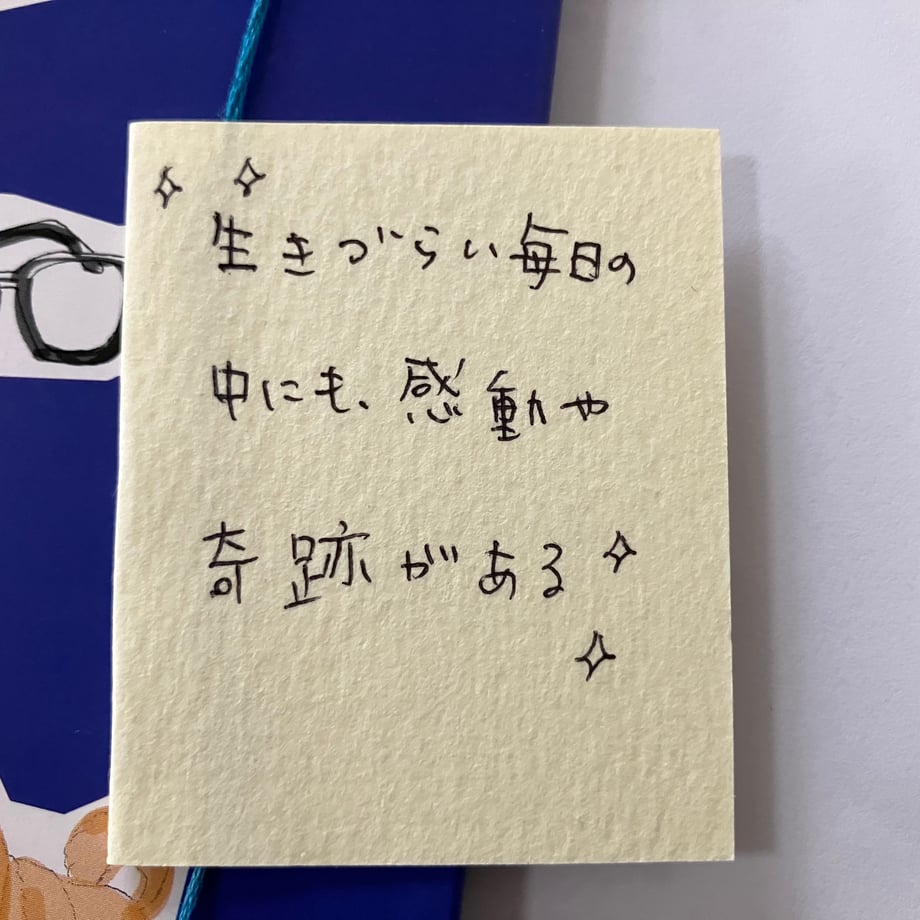 生きづらい毎日の
中にも、感動や
奇跡がある